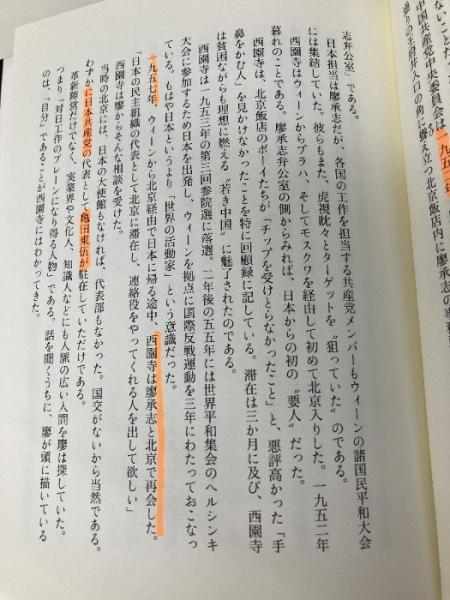 中国共産党中央委員会は一九五二年
通りの王府井入口の角に聳え立つ北京飯店内に廖承志の
志弁公室」である。
日本担当は廖承志だが、各国の工作を担当する共産党メンバーもウィーンの諸国民平和大会
には集結していた。彼らもまた、虎視眈々とターゲットを〝狙っていた〟のである。
西園寺はウィーンからプラハ、そしてモスクワを経由して初めて北京入りした。一九五二年
暮れのことである。廖承志弁公室の側からみれば、日本からの初の〝要人〟だった。
西園寺は、北京飯店のボーイたちが「チップを受けとらなかったこと」と、悪評高かった「手
鼻をかむ人」を見かけなかったことを特に回顧録に記している。滞在は三か月に及び、西園寺
は貧困ながらも理想に燃える〝若き中国〟に魅了されたのである。
西園寺は一九五三年の第三回参院選に落選。二年後の五五年には世界平和集会のヘルシンキ
大会に参加するため日本を出発し、ウィーンを拠点に国際反戦運動を三年にわたっておこなっ
ている。もはや日本人というより「世界の活動家」という意識だった。
一九五七年、ウィーンから北京経由で日本に帰る途中、西園寺は廖承志と北京で再会した。
「日本の民主組織の代表として北京に滞在し、連絡役をやってくれる人を出して欲しい」
西園寺は廖からそんな相談を受けた。
当時の北京には、日本の大使館もなければ、代表部もなかった。国交がないから当然である。
わずかに日本共産党の代表として亀田東伍が駐在していただけである。
革新陣営だけでなく、実業界や文化人、知識人などにも人脈の広い人間を廖は探していた。
つまり「対日工作のブレーンになり得る人物」である。話を聞くうちに、廖が頭に描いている
のは、「自分」であることが西園寺にはわかってきた。